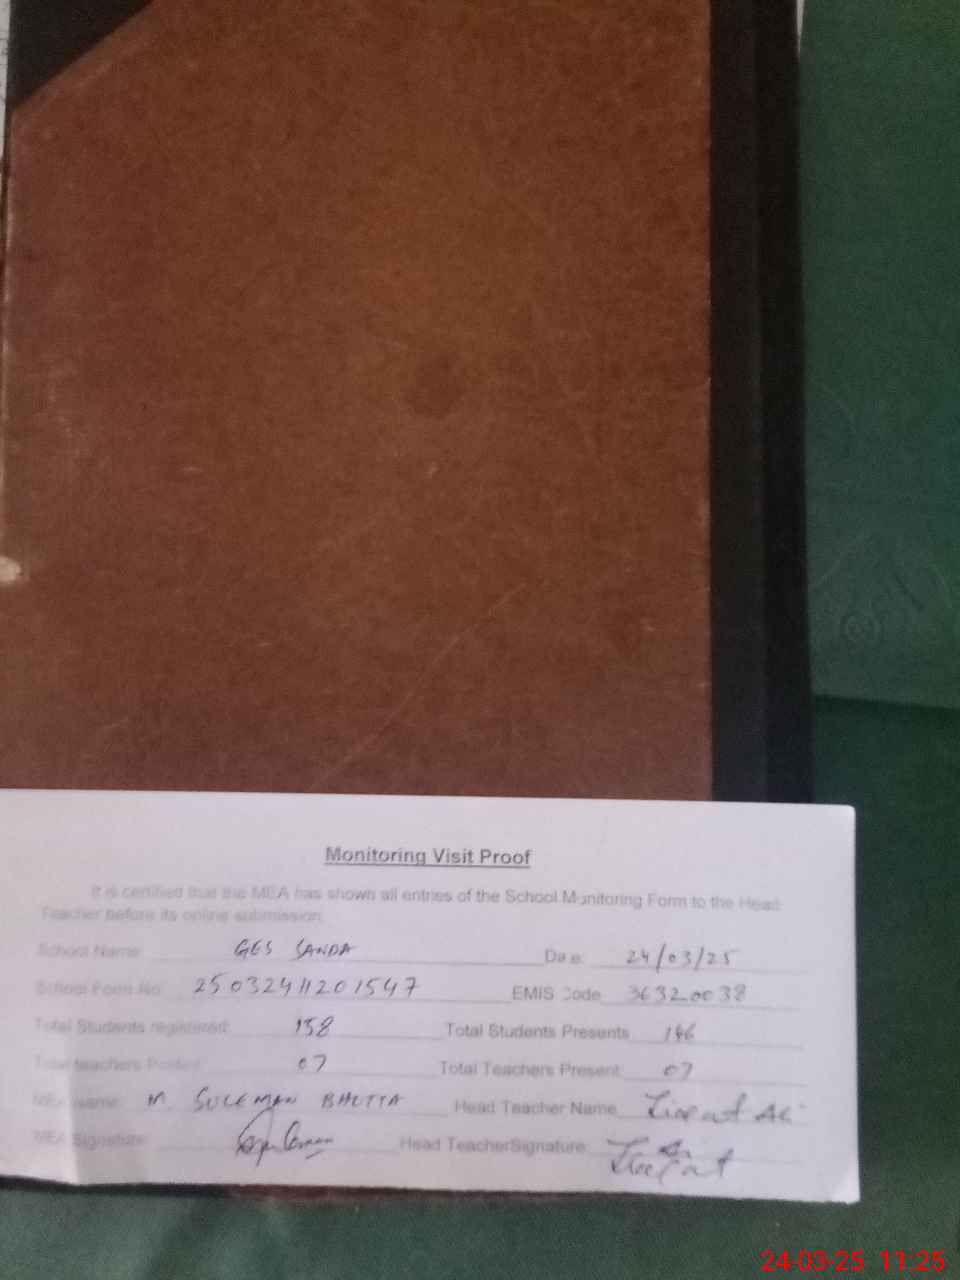 Monitoring Visit Proof
It is certified that the MEA has shown all entries of the School Monitoring Form to the Head
Teacher before its online submission.
School Name: GES SANDA Date: 24/03/25
School Form No: 25032411201547 EMIS Code 36320038
Total Students registered: 158 Total Students Presents 146
Total teachers Posted: 07 Total Teachers Present: 07
MEA Name: M. SULEMAN BHUTTA Head Teacher Name Liaqat Ali
MEA Signature: Head TeacherSignature:
24-03-25 11:25